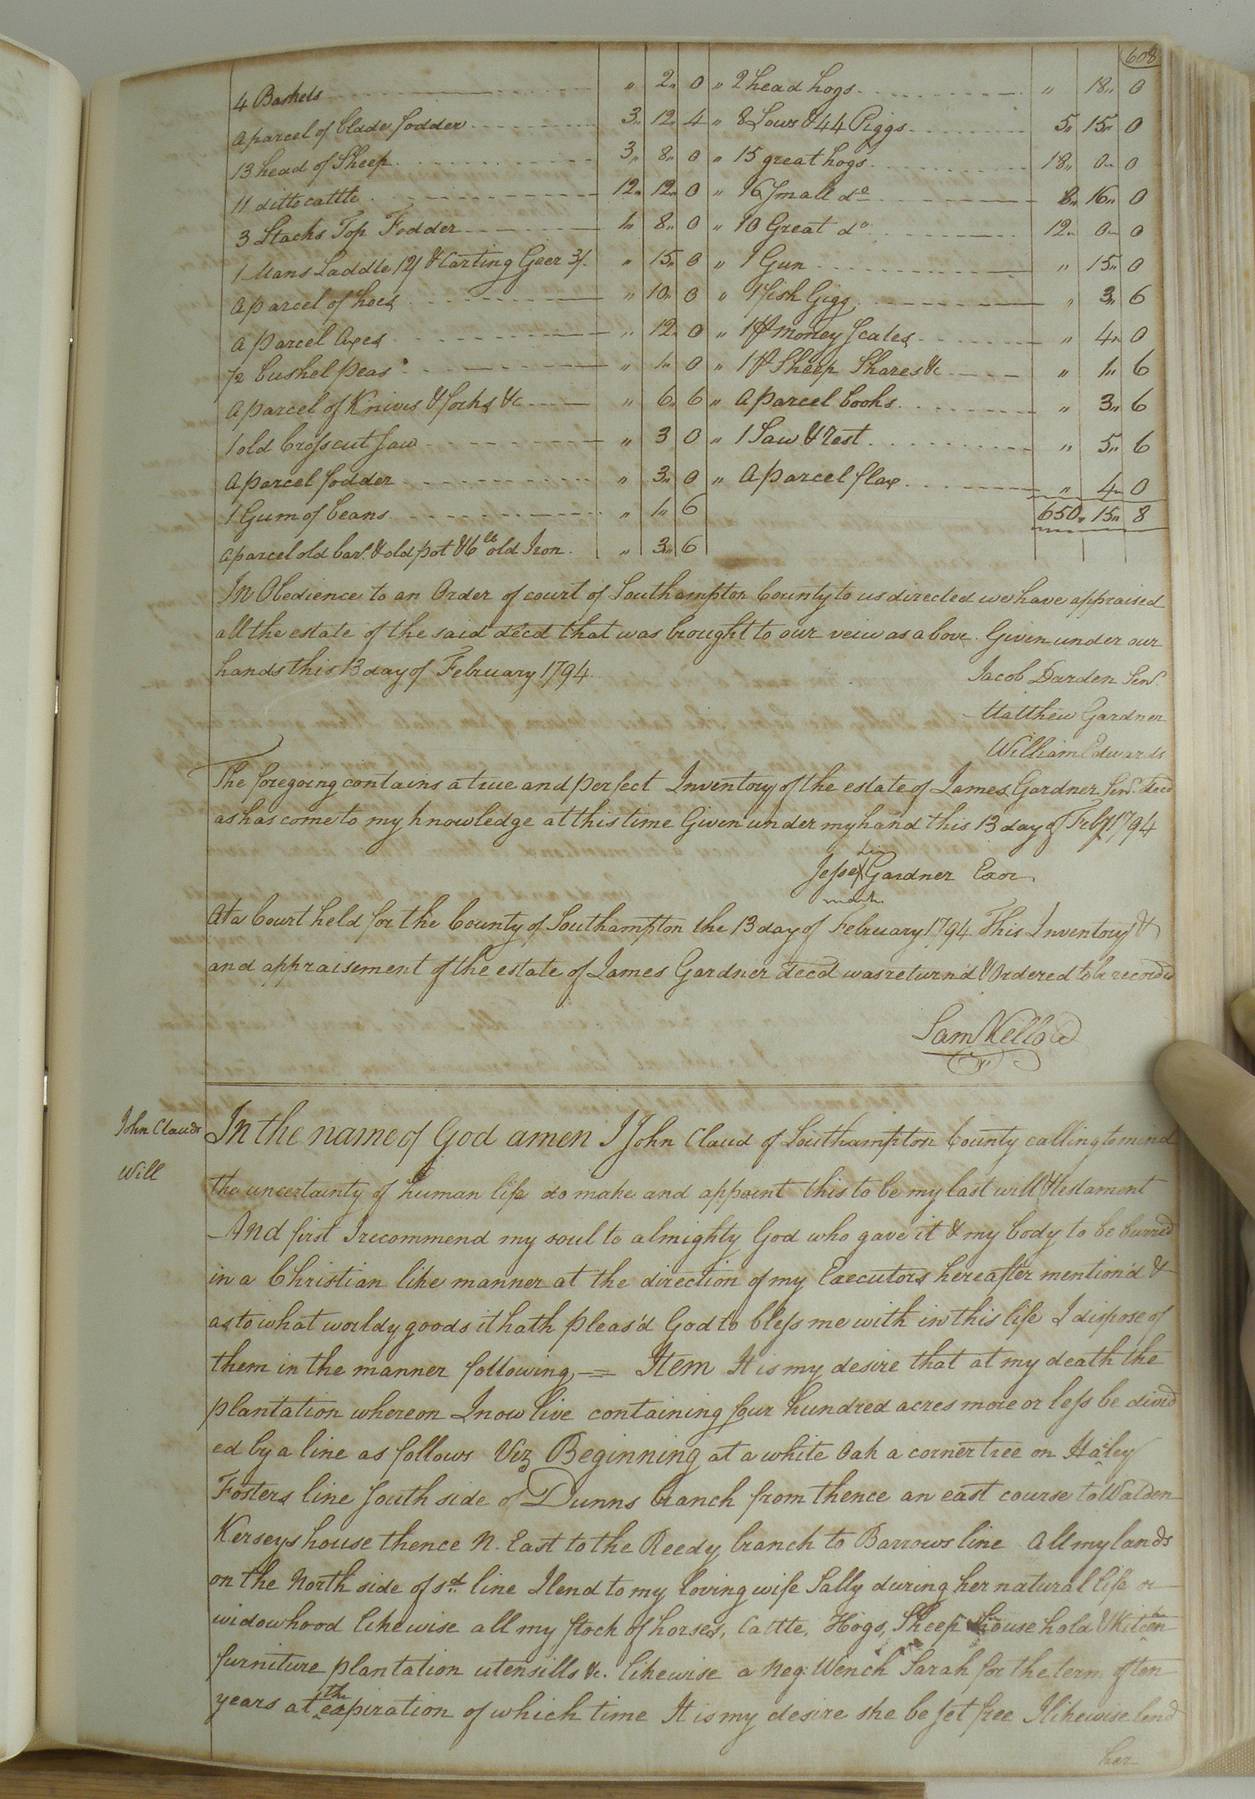 608
4 Baskets " 2 " 0 " 2 head hogs " 18 " 0
a parcel of blade fodder 3 " 12 " 4 " 8 Sows & 44 Piggs 5 " 15 " 0
13 head of Sheep 3 " 8 " 0 " 15 great hogs 18 " 0 " 0
11 ditto cattle 12 " 12 " 0 " 16 Small do 8 " 16 " 0
3 Stacks Top Fodder 8 " 0 " 10 Great do 12 " 0 " 0
1 Mans Saddle 12/ & Carting Geer 3/. " 15 " 0 " 1 Gun " 15 " 0
a parcel of hoes " 10 " 0 " 1 fish Gigg " 3 " 6
a parcel Axes " 12 " 0 " 1 pr money Scales " 4 " 0
1/2 bushel peas " 1 " 0 " 1 pr Sheep Shares &c " 1 " 6
a parcel of Knives & forks &c " 6 " 6 " a parcel books " 3 " 6
1 old Crosscut Saw " 3 0 " 1 Saw & rest " 5 " 6
a parcel fodder " 3 " 0 " a parcel flax " 4 " 0
1 Gum of beans " 1 " 6 650 " 15 " 8
a parcel old barl. & old pot & 6 lb old Iron. " 3 " 6
In Obedience to an Order of court of Southampton County to us directed we have appraised
all the estate of the said decd that was brought to our veiw as above. Given under our
hands this 13 day of February 1794.
Jacob Darden Senr.
Matthew Gardner
William Edwards
The foregoing contains a true and perfect Inventory of the estate of James Gardner Senr. decd
as has come to my knowledge at this time Given under my hand this 13 day of Feby 1794
his
Jesse X Gardner Exor.
mark
At a Court held for the County of Southampton the 13 day of February 1794 This Inventory &
and appraisement of the estate of James Gardner decd was return'd & Ordered to be recorded
Sam Kello
John Clauds
Will
In the name of God amen I John Claud of Southampton County calling to mind
the uncertainty of human life do make and appoint this to be my last will & testament
And first I recommend my soul to almighty God who gave it & my body to be burried
in a Christian like manner at the direction of my Executors hereafter mention'd &
as to what worldy goods it hath pleas'd God to bless me with in this life I dispose of
them in the manner following,— Item It is my desire that at my death the
plantation whereon I now live containing four hundred acres more or less be divid
ed by a line as follows Viz Beginning at a white Oak a corner tree on Haley
Fosters line South side of Dunns branch from thence an east course to Walden
Kerseys house thence N. East to the Reedy branch to Barrows line All my lands
on the North side of sd. line I lend to my loving wife Sally during her natural life or
widowhood likewise all my stock of horses, Cattle, Hogs, Sheep house hold & Kitcen
furniture plantation utensills &c. likewise a neg: Wench Sarah for the term of ten
years at the expiration of which time It is my desire she be set free I likewise lend
her